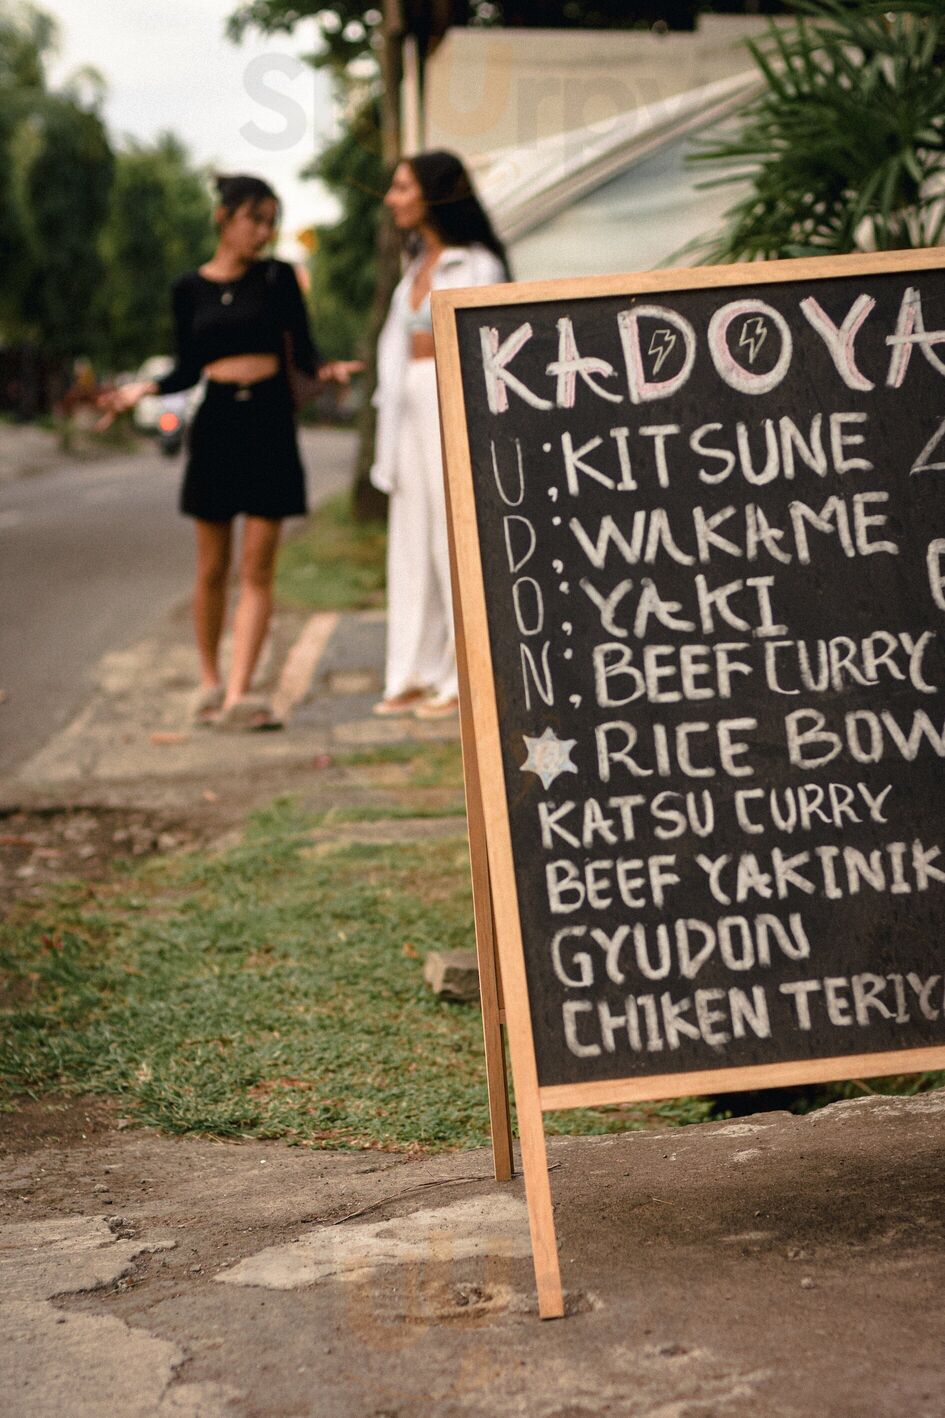 KADOYA
U ; KITSUNE
D ; WAKAME
O ; YAKI
N ; BEEF CURRY
RICE BOW
KATSU CURRY
BEEF YAKINIK
GYUDON
CHIKEN TERIY